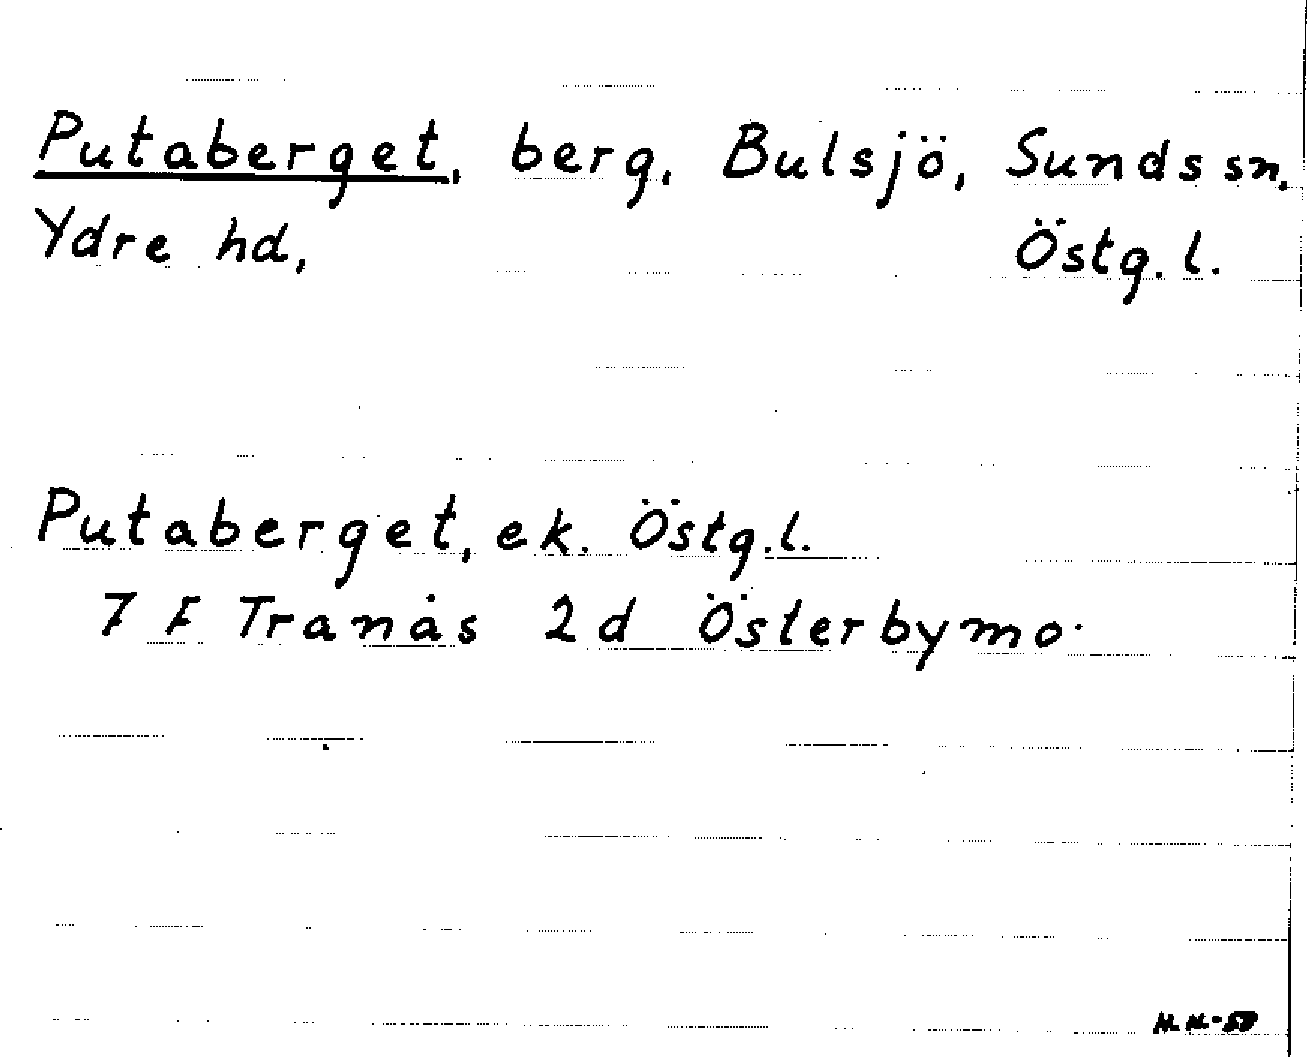 Putaberget, berg, Bulsjö, Sunds sn.
Ydre hd, Östg. l.
Putaberget, ek. Östg. l.
7 F Tranås 2 d Österbymo.